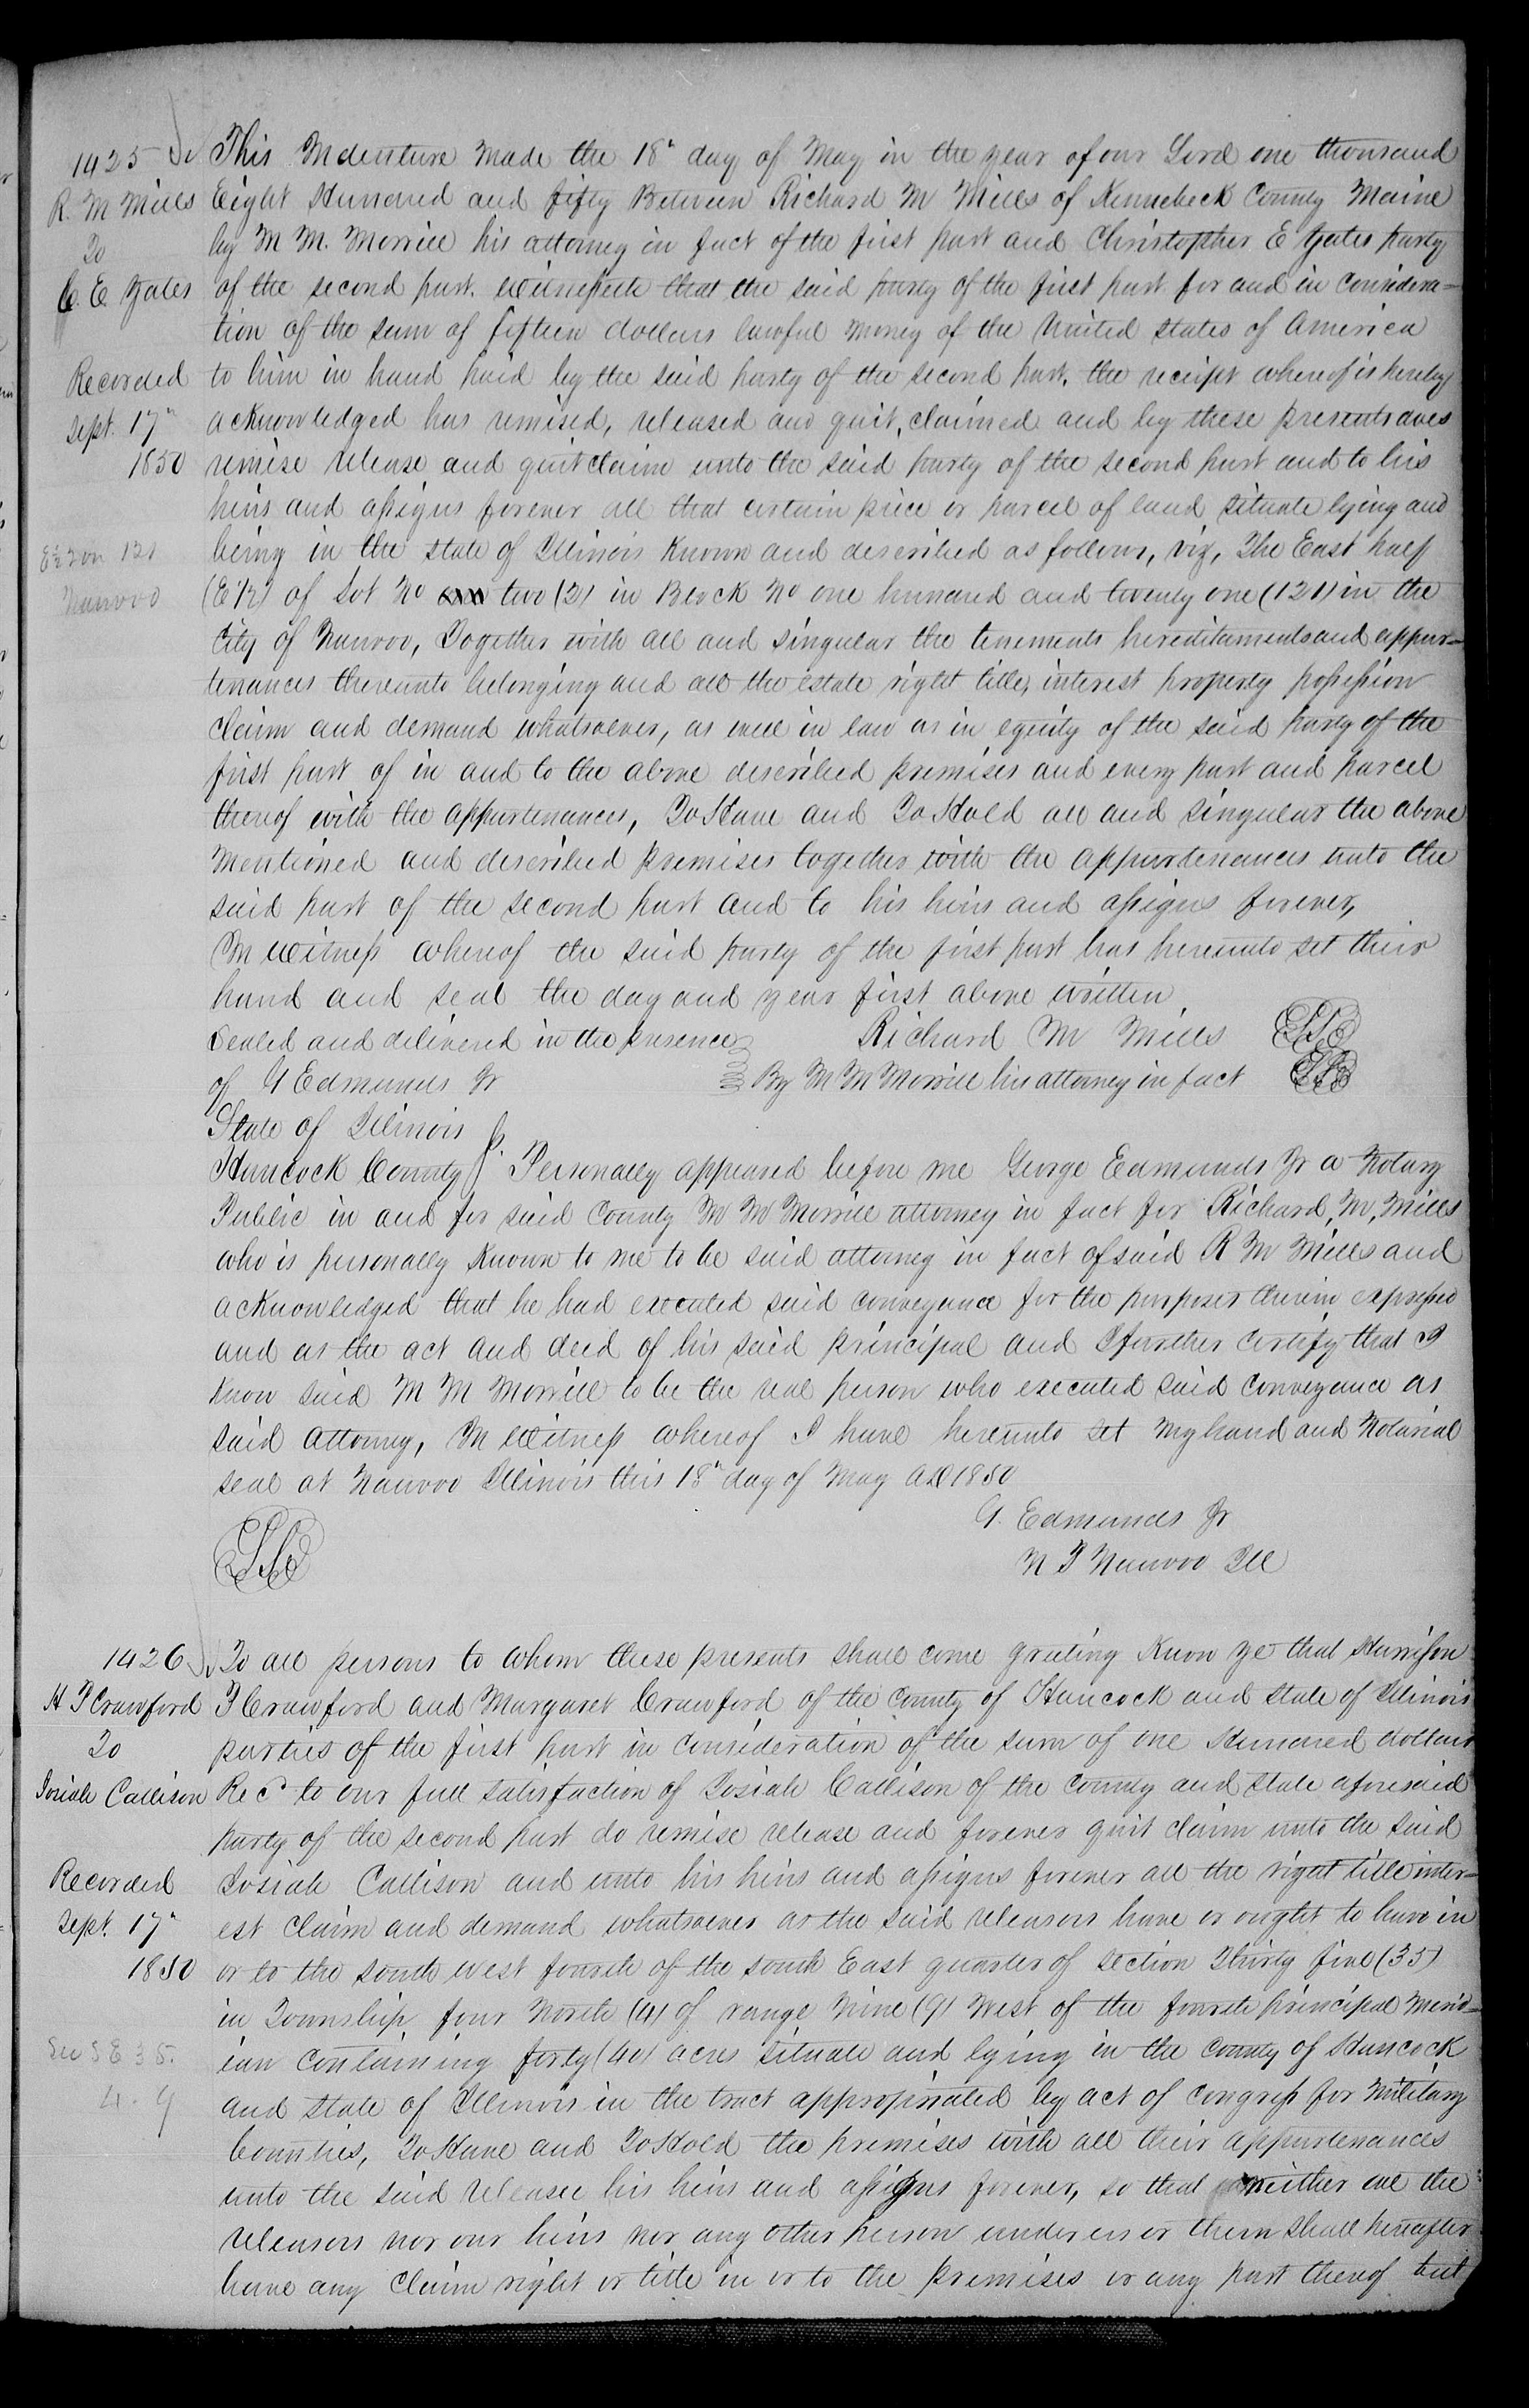 1425
R. M Mills
To
C. E. Yates
Recorded
Sept. 17"
1850
E½ 2 on 121
Nauvoo
This Indenture Made the 18" day of May in the year of our Lord one thousand
Eight Hundred and fifty Between Richard M Mills of Kennebeck County Maine
by M M. Morrill his attorney in fact of the first part and Christopher E Yates party
of the second part. Witnesseth that the said party of the first part for and in considera-
tion of the sum of fifteen dollars lawful money of the United States of America
to him in hand paid by the said party of the second part, the receipt whereof is hereby
acknowledged has remised, released and quit, claimed and by these presents does
remise release and quitclaim unto the said party of the second part and to his
heirs and assigns forever all that certain piece or parcel of land situate lying and
being in the state of Illinois Known and described as follows, viz, The East half
(E 1/2) of Lot No two (2) in Block No one hundred and twenty one (121) in the
City of Nauvoo, Together with all and singular the tenements hereditaments and appur-
tenances thereunto belonging and all the estate right title, interest property possession
claim and demand whatsoever, as well in law as in equity of the said party of the
first part of in and to the above described premises and every part and parcel
thereof with the appurtenances, To Have and To Hold all and singular the above
mentioned and described premises together with the appurtenances unto the
said part of the second part and to his heirs and assigns forever,
In Witness whereof the said party of the first part has hereunto set their
hand and seal the day and year first above written
Sealed and delivered in the presence Richard M Mills LS
of G Edmunds Jr By M M Morrill his attorney in fact LS
State of Illinois
Hancock County } ss. Personally appeared before me George Edmunds Jr a Notary
Public in and for said County M M Morrill attorney in fact for Richard, M, Mills
who is personally Known to me to be said attorney in fact of said R M Mills and
acknowledged that he had executed said conveyance for the purposes therein expressed
and as the act and deed of his said principal and I further certify that I
Know said M M Morrill to be the real person who executed said conveyance as
said attorney, In Witness whereof I have hereunto set my hand and Notarial
seal at Nauvoo Illinois this 18" day of May AD 1850
G. Edmunds Jr
LS N P Nauvoo Ill
1426
H P Crawford
To
Josiah Callison
Recorded
Sept. 17"
1850
S E 35.
4. 9
To all persons to whom these presents shall come greeting Know ye that Harrison
P Crawford and Margaret Crawford of the County of Hancock and state of Illinois
parties of the first part in consideration of the sum of one Hundred dollars
Rec'd to our full satisfaction of Josiah Callison of the County and state aforesaid
party of the second part do remise release and forever quit claim unto the said
Josiah Callison and unto his heirs and assigns forever all the right title inter-
est claim and demand whatsoever as the said releasors have or ought to have in
or to the south west fourth of the south East quarter of section Thirty five (35)
in Township four North (4) of range Nine (9) West of the fourth principal Merid-
ian containing forty (40) acres situate and lying in the county of Hancock
and state of Illinois in the tract appropriated by act of congress for Military
bounties, To Have and To Hold the premises with all their appurtenances
unto the said releasee his heirs and assigns forever, so that neither we the
releasors nor our heirs nor any other person under us or them shall hereafter
have any claim right or title in or to the premises or any part thereof but